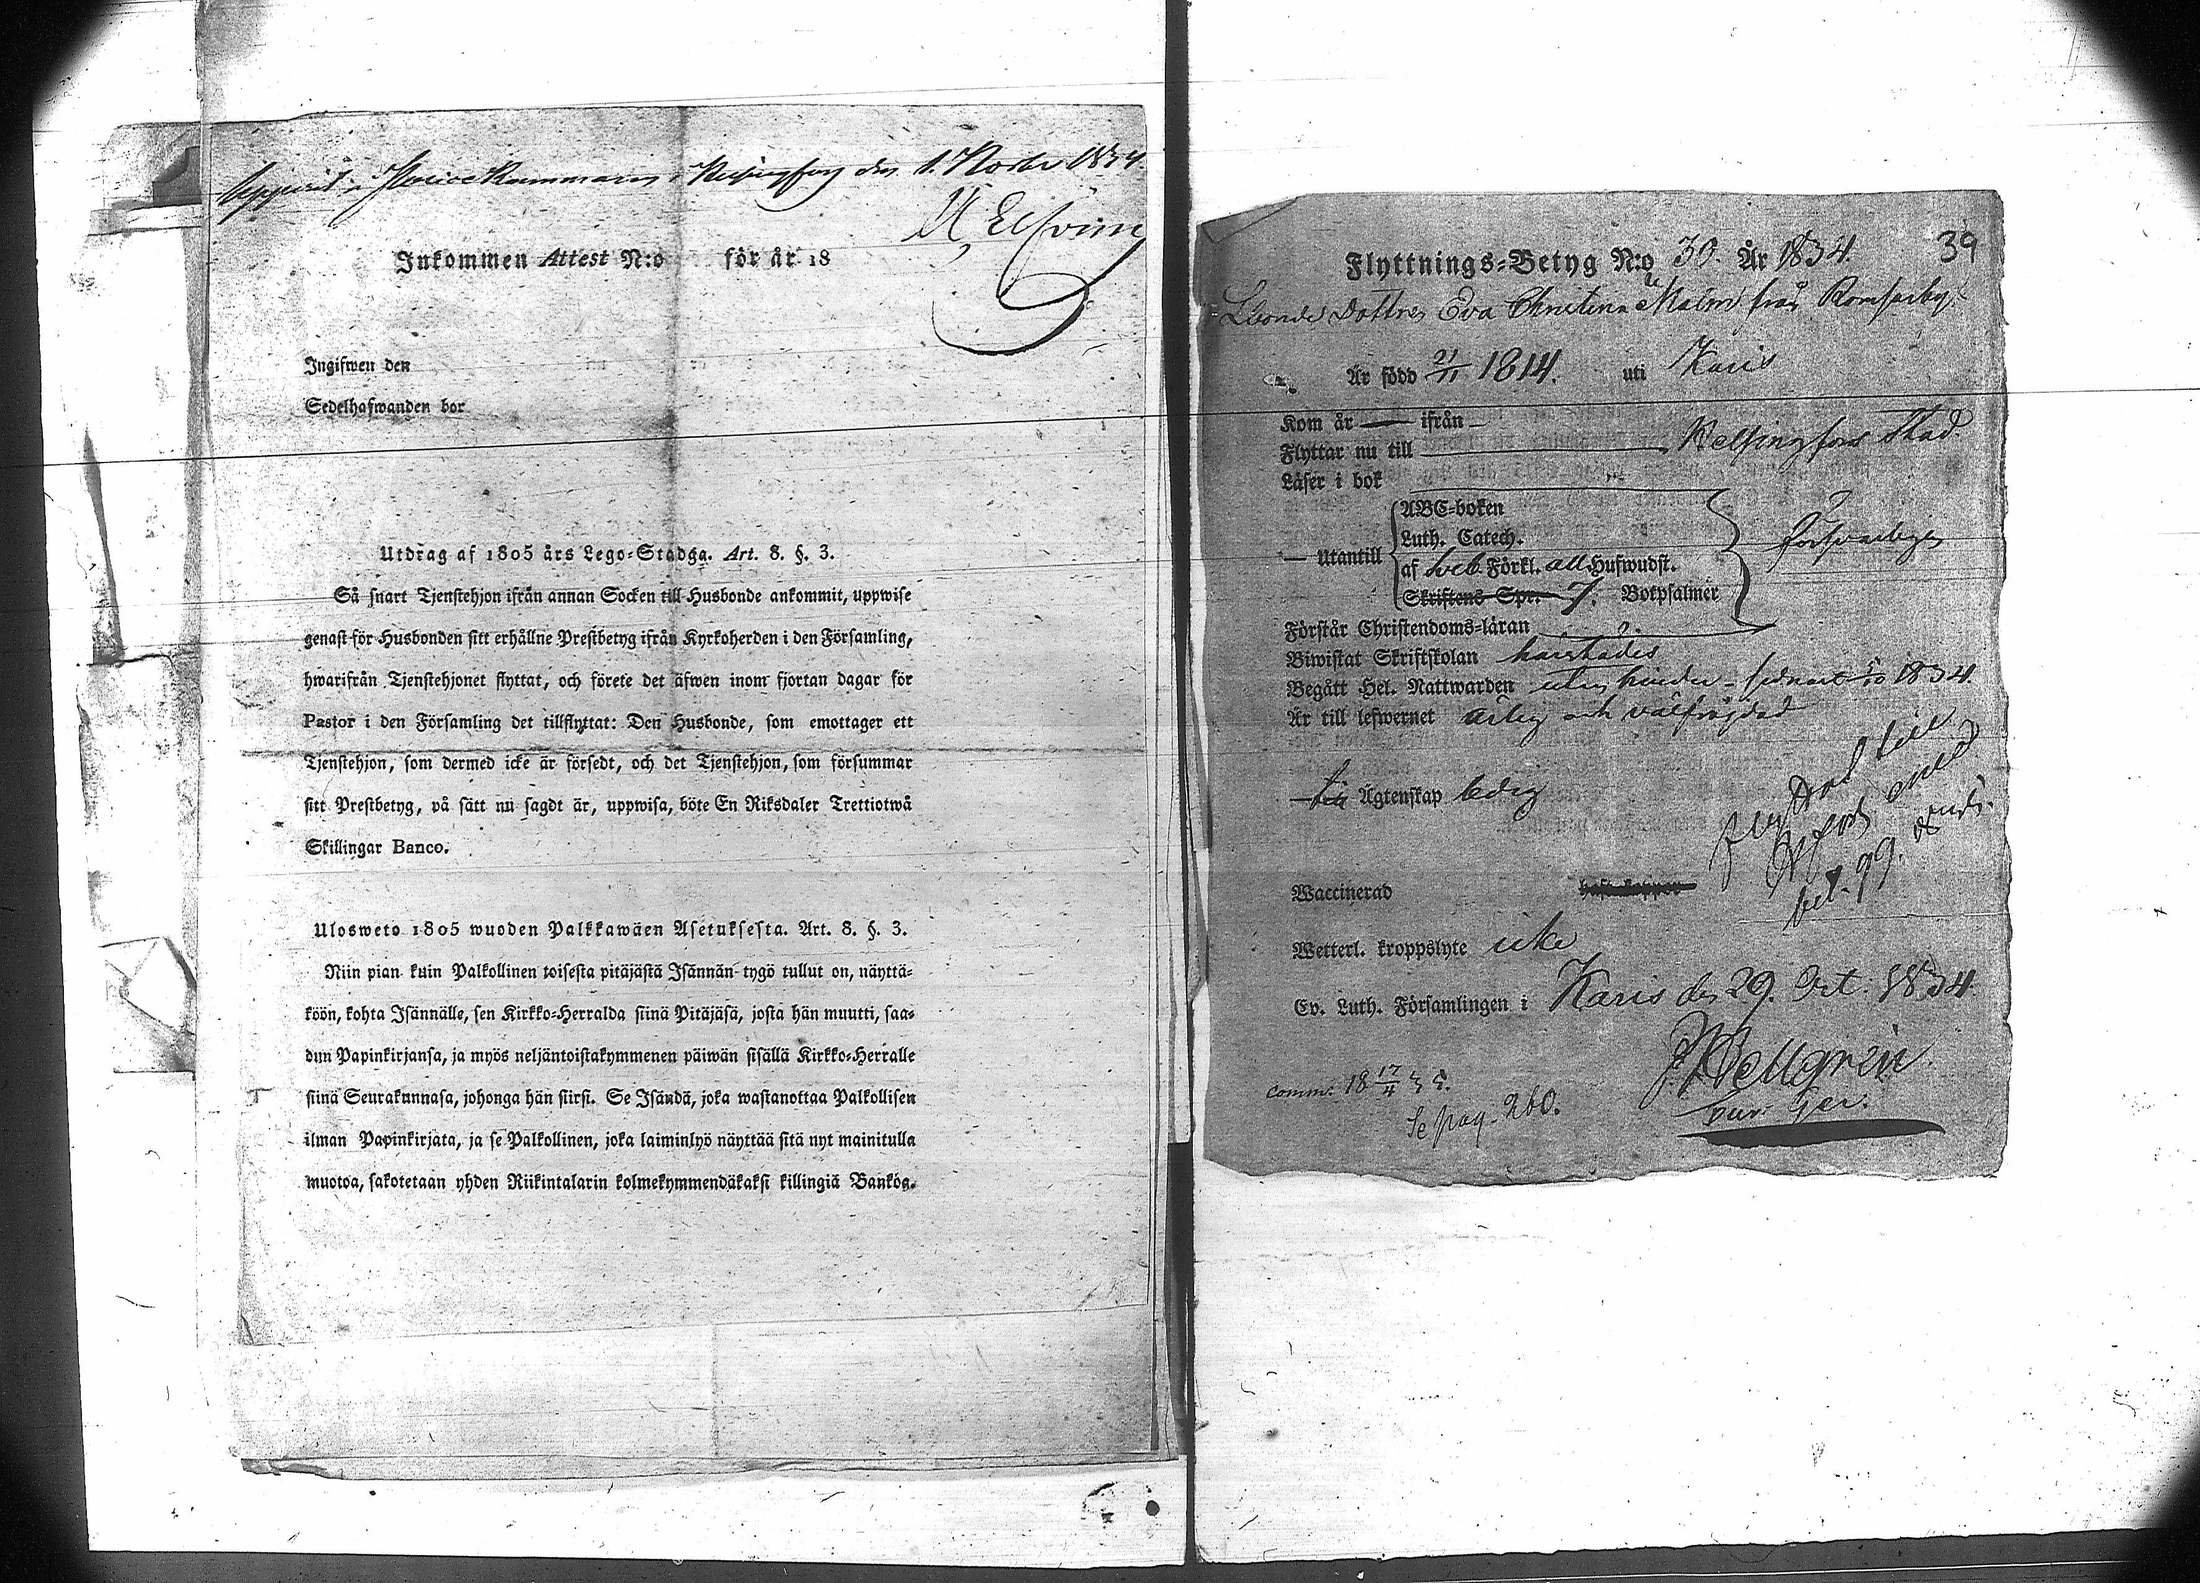 Uppvist i Police Kammaren i Helsingfors den 1. Novbr 1834
Inkommen Attest N:o för år 18
Ingifwen den
Sedelhafwanden bor
Utdrag af 1805 års Lego-Stadga. Art. 8. §. 3.
Så snart Tjenstehjon ifrån annan Socken till Husbonde ankommit, uppwise
genast för Husbonden sitt erhållne Prestbetyg ifrån Kyrkoherden i den Församling,
hwarifrån Tjenstehjonet flyttat, och förete det äfwen inom fjortan dagar för
Pastor i den Församling det tillflyttat: Den Husbonde, som emottager ett
Tjenstehjon, som dermed icke är försedt, och det Tjenstehjon, som försummar
sitt Prestbetyg, på sätt nu sagdt är, uppwisa, böte En Riksdaler Trettiotwå
Skillingar Banco.
Ulosweto 1805 wuoden Palkkawäen Asetuksesta. Art. 8. §. 3.
Niin pian kuin Palkollinen toisesta pitäjästä Isännän tygö tullut on, näyttä-
köön, kohta Isännälle, sen Kirkko-Herralda siinä Pitäjäsä, josta hän muutti, saa-
dun Papinkirjansa, ja myös neljäntoistakymmenen päiwän sisällä Kirkko-Herralle
siinä Seurakunnasa, johonga hän siirsi. Se Isändä, joka wastanottaa Palkollisen
ilman Papinkirjata, ja se Palkollinen, joka laiminlyö näyttää sitä nyt mainitulla
muotoa, sakotetaan yhden Riikintalarin kolmekymmendäkaksi killingiä Bankög.
39
Flyttnings-Betyg N:o 30. År 1834.
Dottren Eva Christina Malm från Romsarby
Är född 21/11 1814. uti Karis
Kom år — ifrån —
Flyttar nu till Helsingfors Stad.
Läser i bok
— Utantill
ABC-boken
Luth. Catech.
af Sveb. Förkl. all Hufwudst.
Skriftens Spr. 7. Botpsalmer
försvarligen
Förstår Christendoms-läran
Biwistat Skriftskolan härstädes
Begått Hel. Nattwarden utan hinder - sednast 5/10 1834.
Är till lefwernet ärlig och välfrägdad
till Ägtenskap ledig
Waccinerad haft koppor
Wetterl. kroppslyte icke
Ev. Luth. Församlingen i Karis den 29. Oct: 1834.
comm. 18 17/4 35.
Se pag. 260.